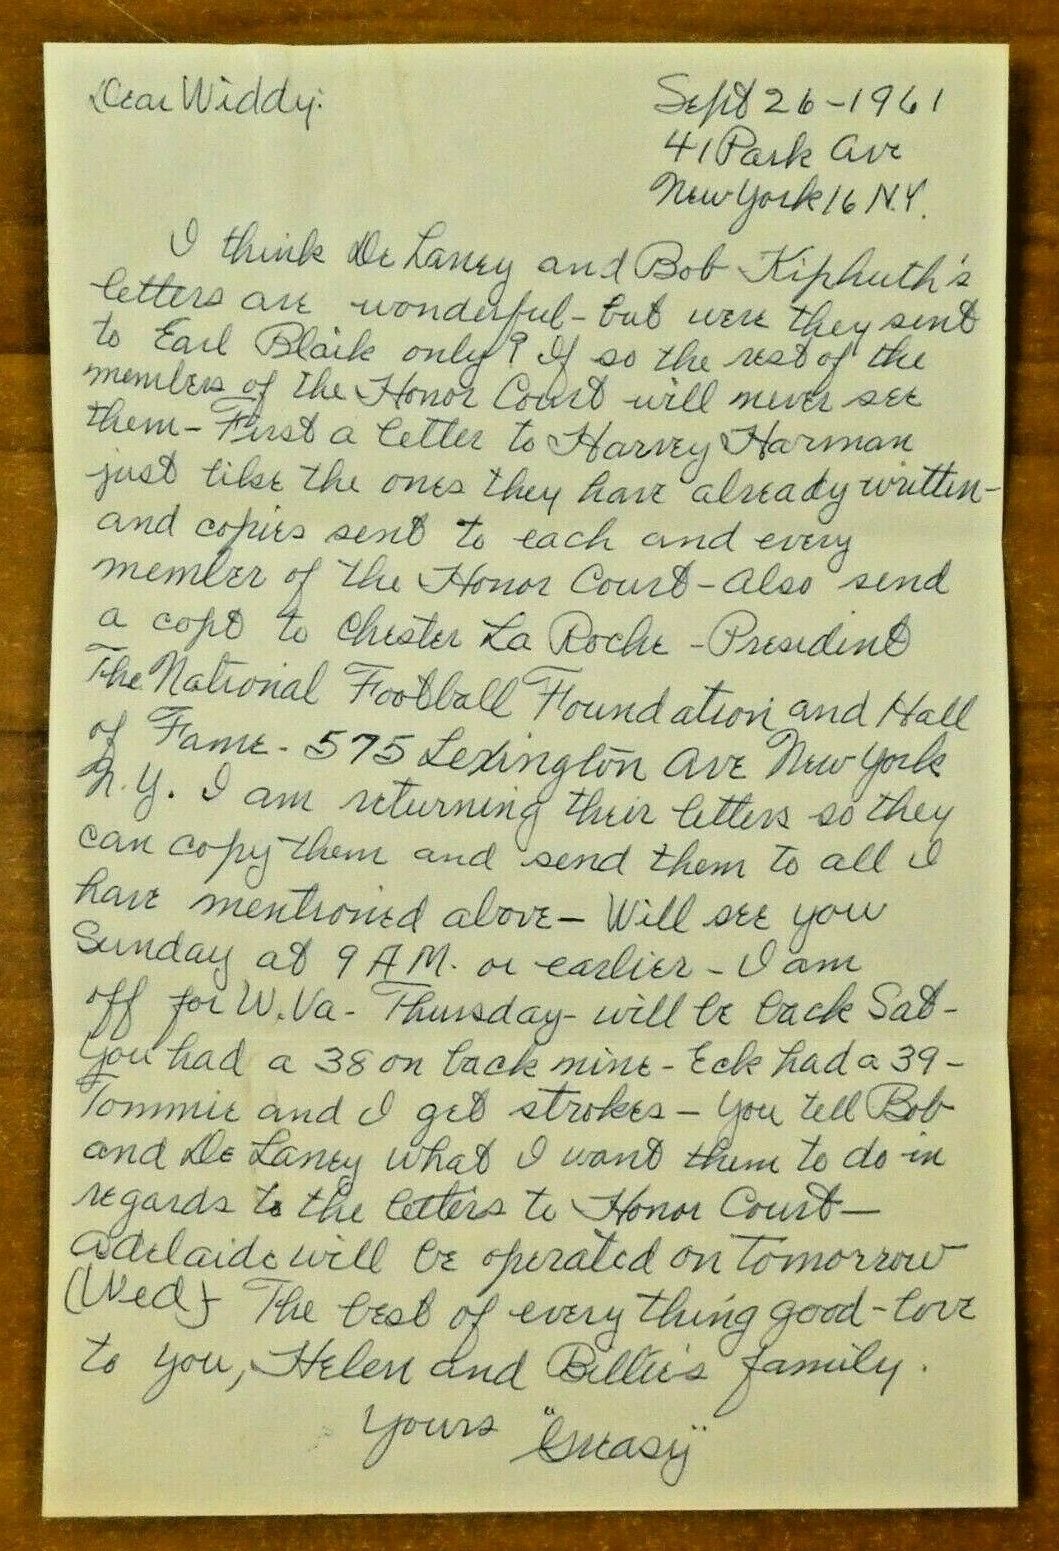 Dear Widdy:
Sept 26-1961
41 Park Ave
New York 16 N.Y.
I think De Laney and Bob Kiphuth's
letters are wonderful - but were they sent
to Earl Blaik only? If so the rest of the
members of the Honor Court will never see
them - First a letter to Harvey Harman
just like the ones they have already written -
and copies sent to each and every
member of the Honor Court - also send
a copt to Chester La Roche - President
The National Football Foundation and Hall
of Fame - 575 Lexington Ave New York
N.Y. I am returning their letters so they
can copy them and send them to all I
have mentioned above - Will see you
Sunday at 9 A.M. or earlier - I am
off for W.Va - Thursday - will be back Sat -
You had a 38 on back mine - Eck had a 39 -
Tommie and I get strokes - You tell Bob
and De Laney what I want them to do in
regards to the letters to Honor Court -
Adelaide will be operated on tomorrow
(Wed) - The best of every thing good - love
to you, Helen and Billie's family.
Yours "Greasy"